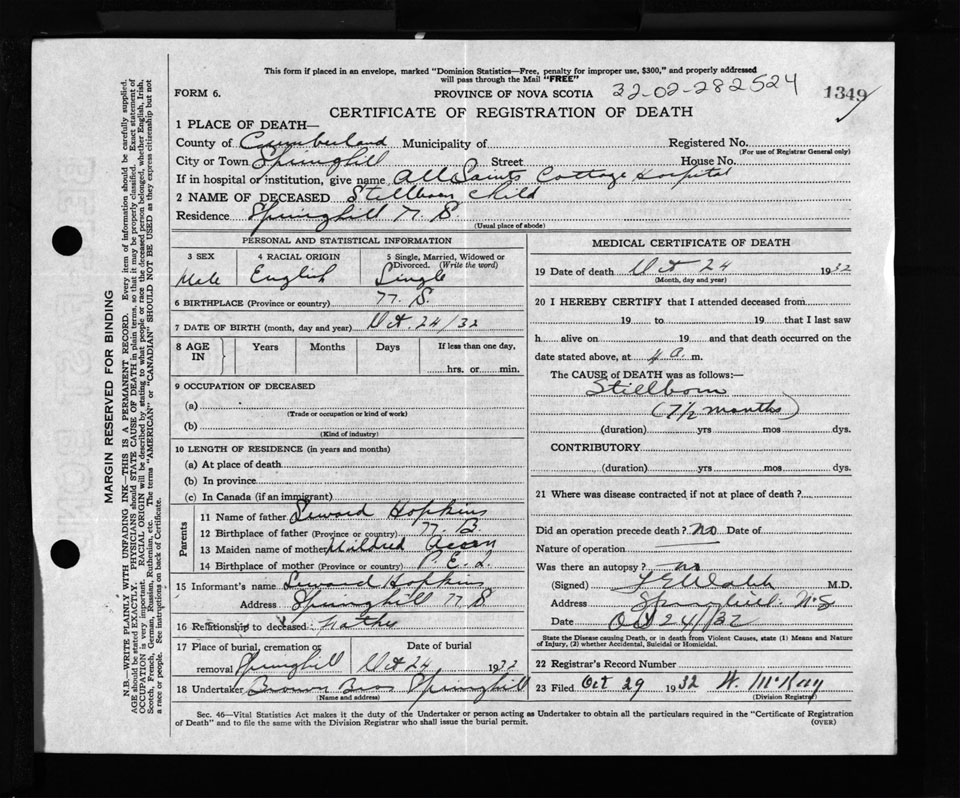 This form if placed in an envelope, marked "Dominion Statistics—Free, penalty for improper use, $300," and properly addressed
will pass through the Mail "FREE"
FORM 6. PROVINCE OF NOVA SCOTIA 32-02-282524 1349
CERTIFICATE OF REGISTRATION OF DEATH
1 PLACE OF DEATH—
County of Cumberland Municipality of Registered No.
(For use of Registrar General only)
City or Town Springhill Street House No.
If in hospital or institution, give name All Saints Cottage Hospital
2 NAME OF DECEASED Stillborn Child
Residence Springhill N. S.
(Usual place of abode)
PERSONAL AND STATISTICAL INFORMATION
3 SEX 4 RACIAL ORIGIN 5 Single, Married, Widowed or
Divorced. (Write the word)
Male English Single
6 BIRTHPLACE (Province or country) N. S.
7 DATE OF BIRTH (month, day and year) Oct. 24/32
8 AGE IN Years Months Days If less than one day,
hrs. or min.
9 OCCUPATION OF DECEASED
(a)
(Trade or occupation or kind of work)
(b)
(Kind of industry)
10 LENGTH OF RESIDENCE (in years and months)
(a) At place of death
(b) In province
(c) In Canada (if an immigrant)
Parents
11 Name of father Seward Hopkins
12 Birthplace of father (Province or country) N. B.
13 Maiden name of mother Mildred Acorn
14 Birthplace of mother (Province or country) P. E. I.
15 Informant's name Seward Hopkins
Address Springhill N S
16 Relationship to deceased Father
17 Place of burial, cremation or Date of burial
removal Springhill Oct 24 1932
18 Undertaker Brown Bros Springhill
(Name and address)
MEDICAL CERTIFICATE OF DEATH
19 Date of death Oct 24 1932
(Month, day and year)
20 I HEREBY CERTIFY that I attended deceased from
19 to 19 that I last saw
h alive on 19 and that death occurred on the
date stated above, at 4 a. m.
The CAUSE of DEATH was as follows:—
Stillborn
(7 1/2 months)
(duration) yrs mos dys.
CONTRIBUTORY
(duration) yrs mos dys.
21 Where was disease contracted if not at place of death?
Did an operation precede death? no Date of
Nature of operation
Was there an autopsy? no
(Signed) Walsh M.D.
Address Springhill. N.S
Date Oct 24/32
State the Disease causing Death, or in death from Violent Causes, state (1) Means and Nature
of Injury, (2) whether Accidental, Suicidal or Homicidal.
22 Registrar's Record Number
23 Filed Oct 29 1932 W. McKay
(Division Registrar)
Sec. 46—Vital Statistics Act makes it the duty of the Undertaker or person acting as Undertaker to obtain all the particulars required in the "Certificate of Registration
of Death" and to file the same with the Division Registrar who shall issue the burial permit. (OVER)
MARGIN RESERVED FOR BINDING
N.B.—WRITE PLAINLY WITH UNFADING INK—THIS IS A PERMANENT RECORD. Every item of information should be carefully supplied.
AGE should be stated EXACTLY. PHYSICIANS should STATE CAUSE OF DEATH in plain terms, so that it may be properly classified. Exact statement of
OCCUPATION is very important. RACIAL ORIGIN will be described by stating to what people or race the deceased person belonged, whether English, Irish,
Scotch, French, German, Russian, Ruthenian, etc. The terms "AMERICAN" or "CANADIAN" SHOULD NOT BE USED as they express citizenship but not
a race or people. See instructions on back of Certificate.